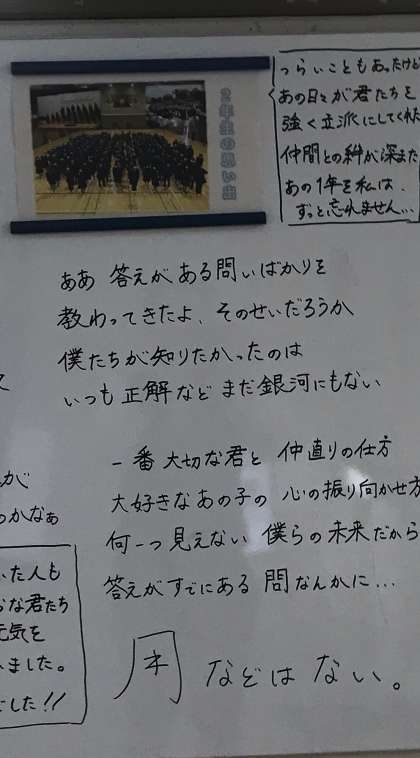 2年生の思い出
つらいこともあったけど
あの日々が君たちを
強く立派にしてくれた
仲間との絆が深また
あの1年を私は、
ずっと忘れません…
ああ 答えがある問いばかりを
教わってきたよ、そのせいだろうか
僕たちが知りたかったのは
いつも正解など まだ銀河にもない
一番大切な君と 仲直りの仕方
大好きなあの子の 心の振り向かせ方
何一つ見えない 僕らの未来だから
答えがすでにある 問なんかに…
用などはない。
が
のかなぁ
た人も
な君たち
元気を
いました。
でした!!